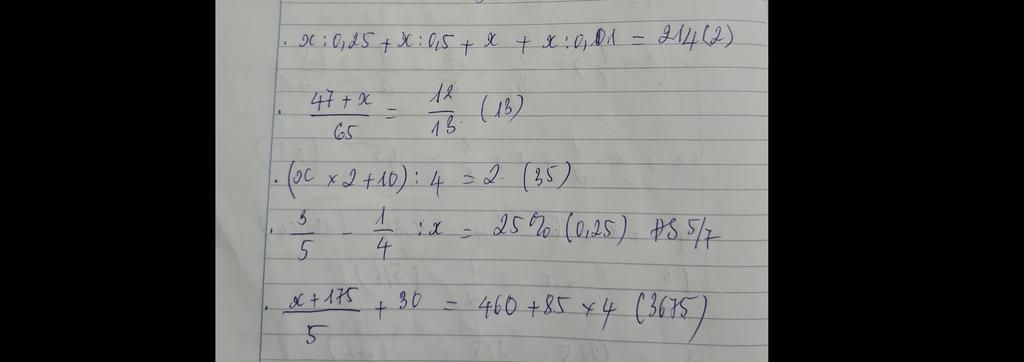 . x : 0,25 + x : 0,5 + x + x : 0,01 = 214 (2)
. (47 + x)/65 = 12/13 (13)
. (x × 2 + 10) : 4 = 2. (35)
. 3/5 - 1/4 : x = 25% (0,25) ĐS 5/7
. (x + 175)/5 + 30 = 460 + 85 × 4 (3675)